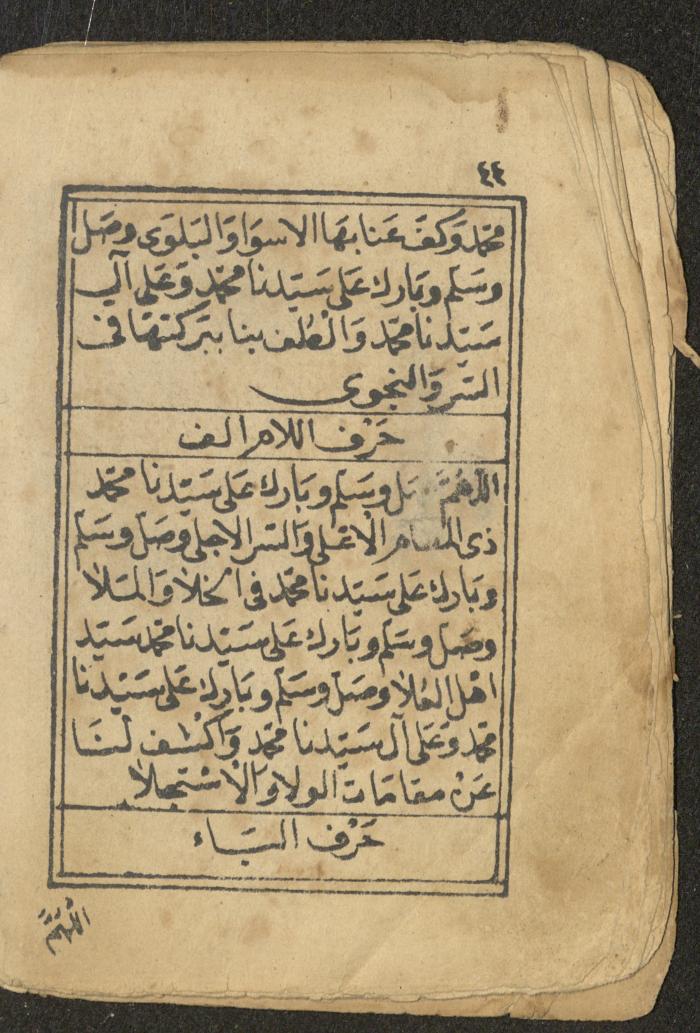 ٤٤
محمد وكف عنا بها الاسوا والبلوى وصل
وسلم وبارك على سيدنا محمد وعلى آل
سيدنا محمد والطف بنا ببركتها فى
السر والنجوى
حرف اللام الف
اللهم صل وسلم وبارك على سيدنا محمد
ذى المقام الاعلى والسر الاجلى وصل وسلم
وبارك على سيدنا محمد فى الخلا والملا
وصل وسلم وبارك على سيدنا محمد سيد
اهل العلا وصل وسلم وبارك على سيدنا
محمد وعلى آل سيدنا محمد واكشف لنا
عن مقامات الولا والاستجلا
حرف الياء
اللهم